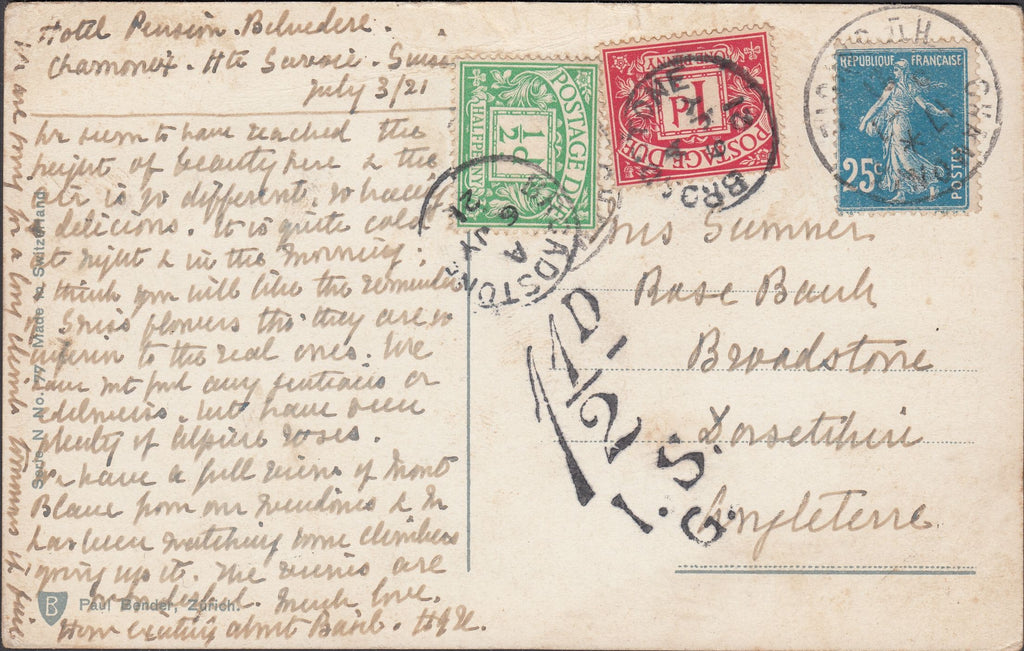 Hotel Pension. Belvedere.
Chamonix. Hte Savoie. Suisse
July 3/21
We seem to have reached the
height of beauty here & the
air is so different, so
delicious. It is quite cold
at night & in the morning.
I think you will like the
Swiss flowers tho' they are so
inferior to the real ones. We
have not find any gentians or
edelweiss. but have seen
plenty of Alpine roses.
We have a full view of Mont
Blanc from our windows & M
has been watching some climbers
going up it. The views are
wonderful. Much love.
How exciting about Basil. H
for a long
Serie N No. 179 Made in Switzerland
B
Paul Bender, Zürich.
POSTAGE DUE
½d
HALFPENNY
POSTAGE DUE
1d
ONE PENNY
BROADSTONE
6 JY
21
REPUBLIQUE FRANÇAISE
25c
POSTES
CHAMONIX
Summer
Rose Bank
Broadstone
Dorsetshire
Angleterre
1½D
I.S.
G.